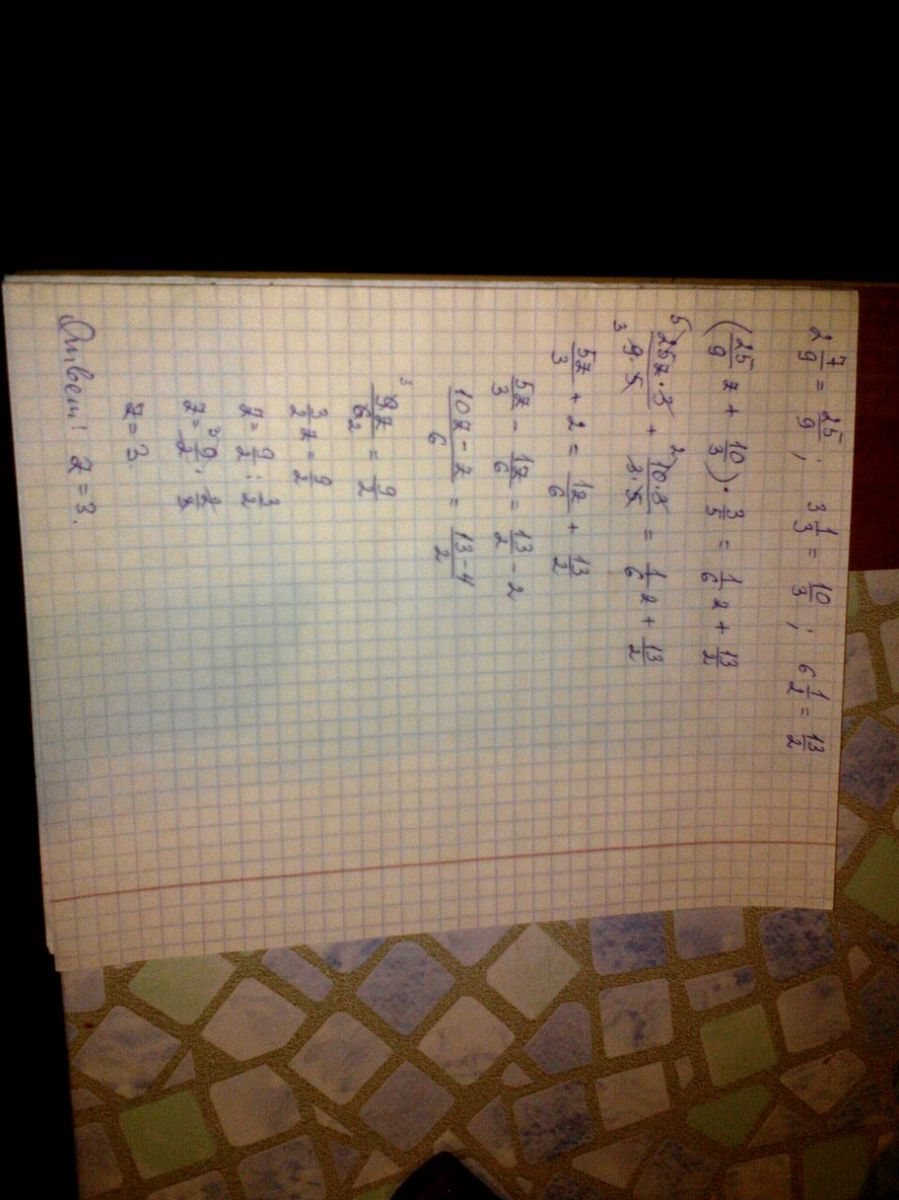 2 7/9 = 25/9 ; 3 1/3 = 10/3 ; 6 1/2 = 13/2
(25/9 z + 10/3) · 3/5 = 1/6 z + 13/2
5 25z·3 / 3 9·5 + 2 10·3 / 3·5 = 1/6 z + 13/2
5z/3 + 2 = 1z/6 + 13/2
5z/3 - 1z/6 = 13/2 - 2
10z - z / 6 = 13-4 / 2
3 9z / 6 2 = 9/2
3/2 z = 9/2
z = 9/2 : 3/2
z = 3 9/2 · 2/3
z = 3.
Ответ: z = 3.